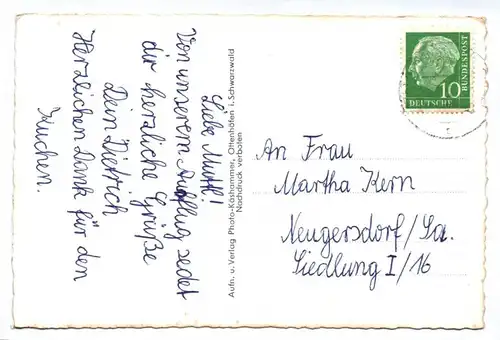 Liebe Mutti!
Von unserem Ausflug
dir herzliche Grüße
Dein Dietrich
Herzlichen Dank für den
Kuchen.
Aufn. u. Verlag Photo-Käshammer, Ottenhöfen i. Schwarzwald
Nachdruck verboten
10
DEUTSCHE
BUNDESPOST
An Frau
Martha Kern
Neugersdorf/Sa.
Siedlung I/16